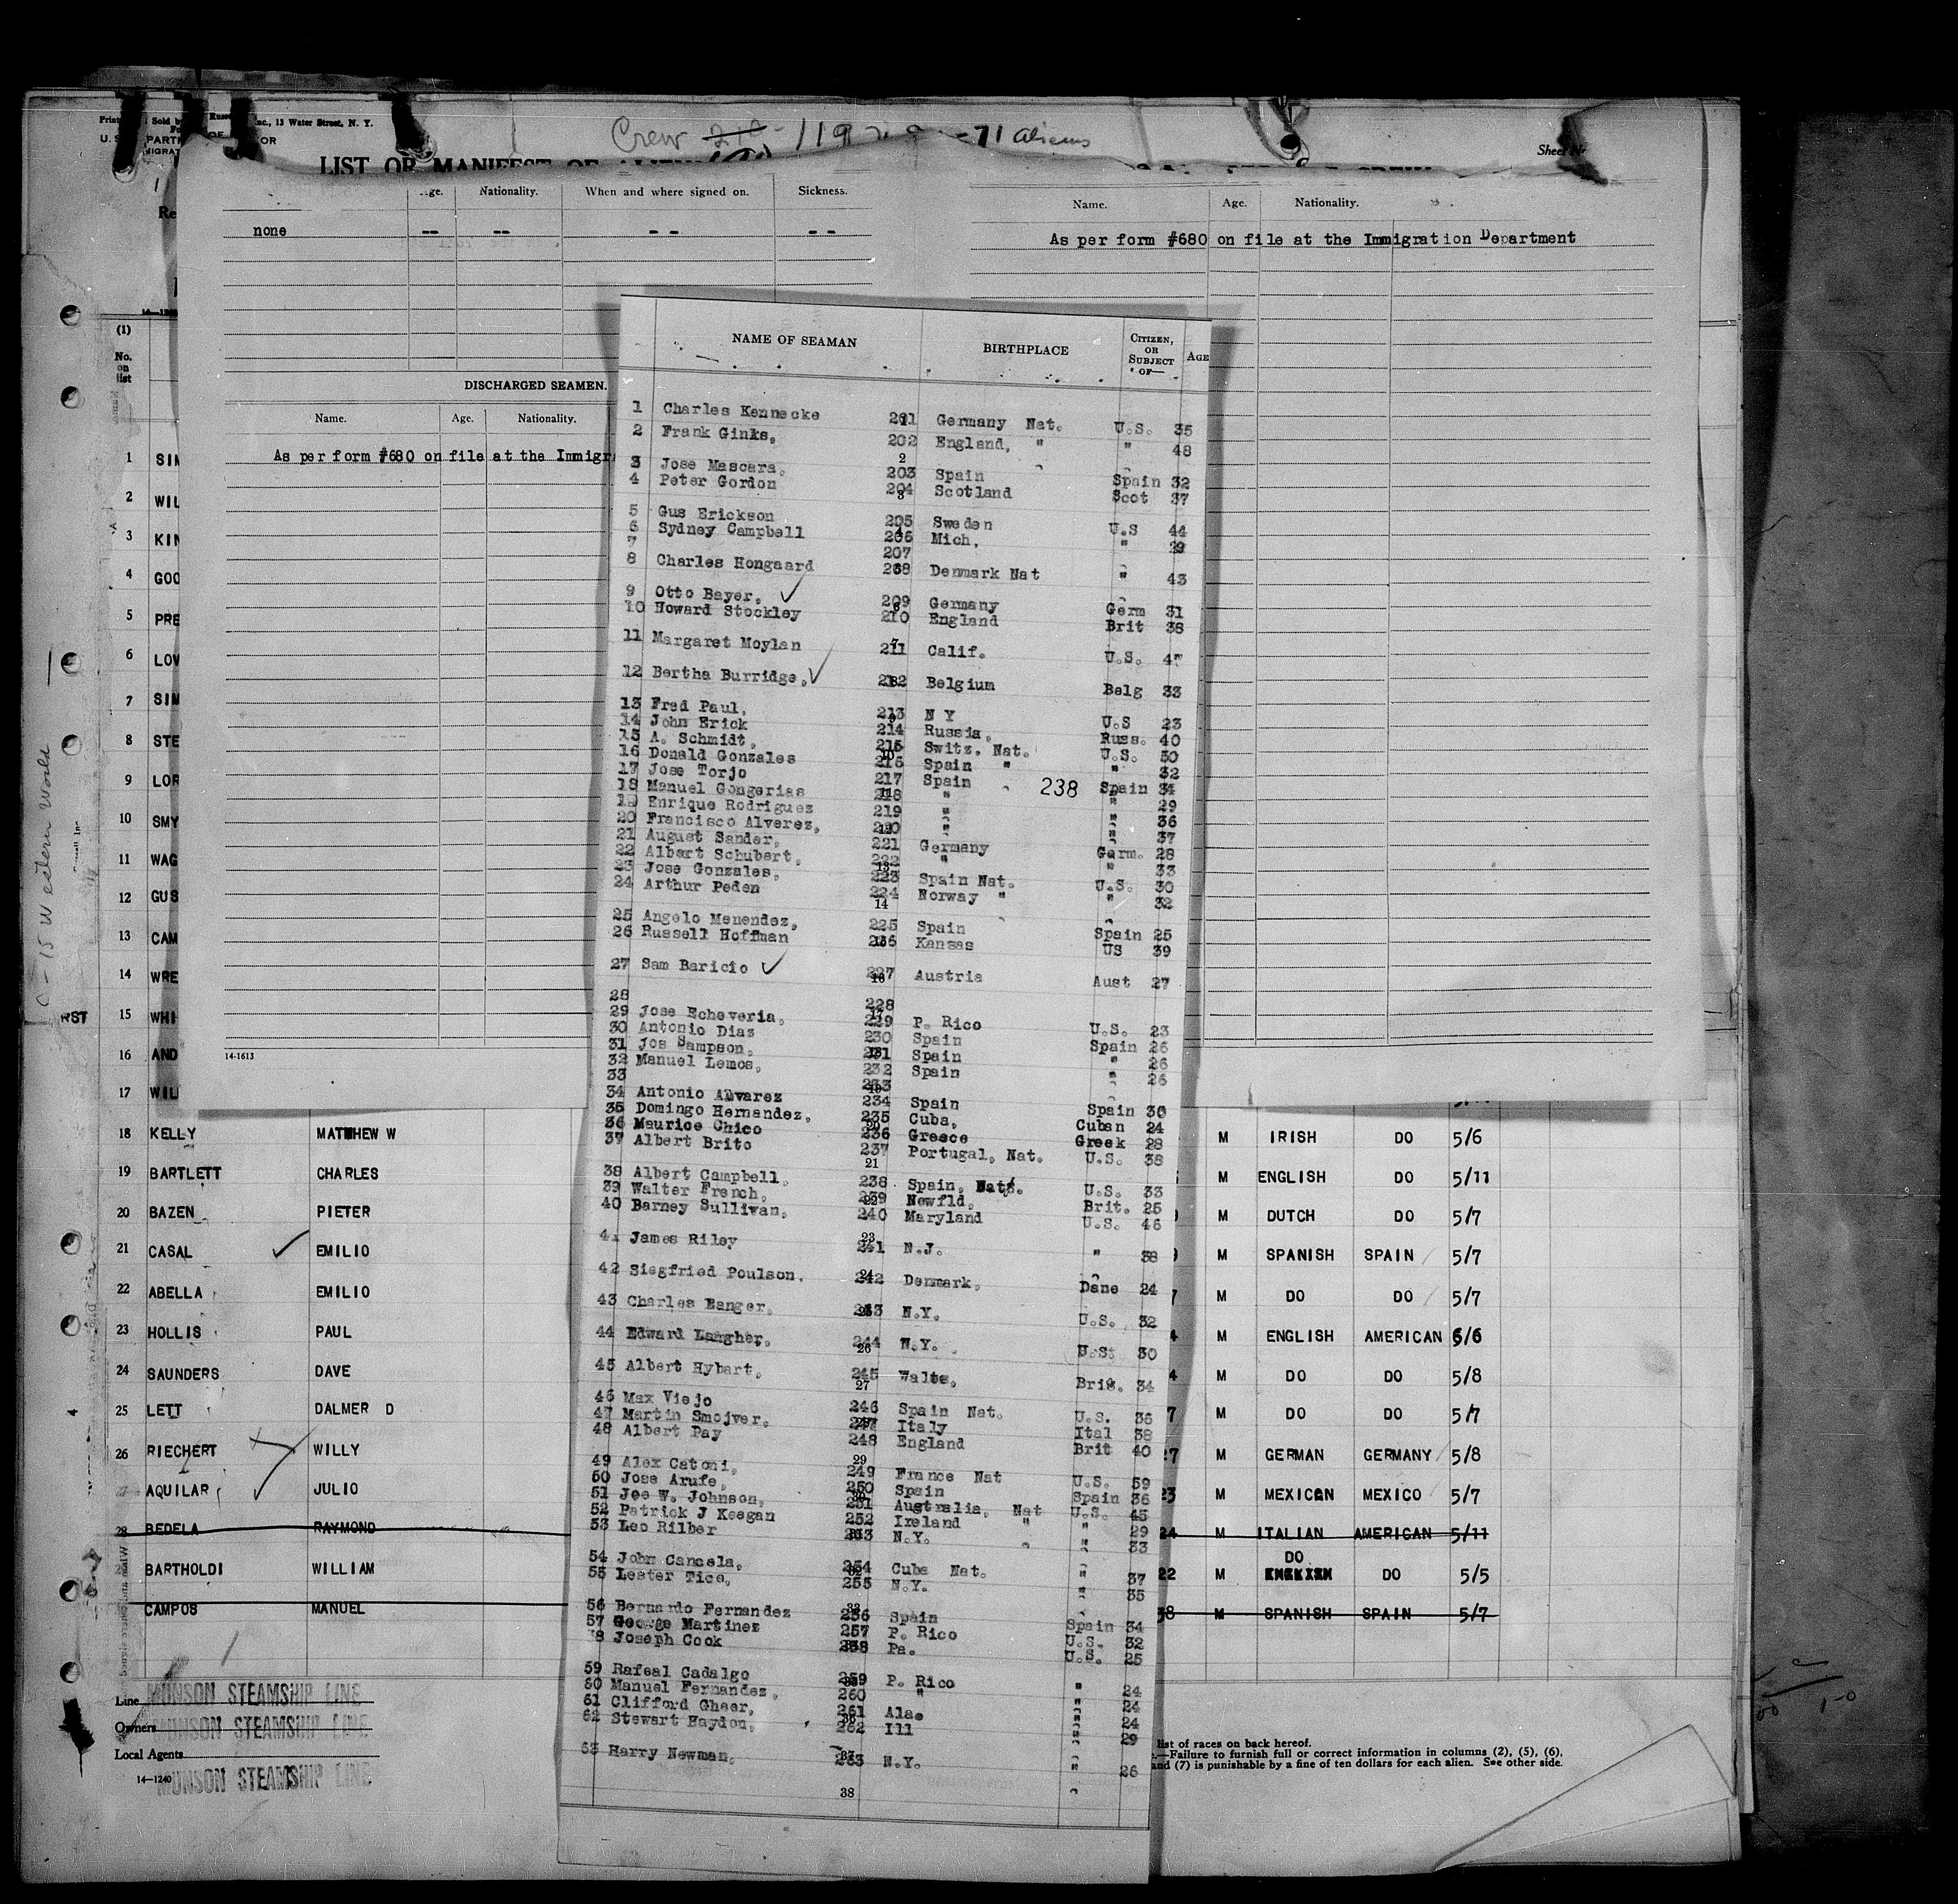 Crew 119 71 aliens
Sold by Inc., 13 Water Street, N. Y.
LIST OR MANIFEST OF
Sheet Nr
Nationality. When and where signed on. Sickness.
none -- -- -- --
Name. Age. Nationality.
As per form #680 on file at the Immigration Department
DISCHARGED SEAMEN.
Name. Age. Nationality.
As per form #680 on file at the Immigr
14-1613
NAME OF SEAMAN BIRTHPLACE CITIZEN, OR SUBJECT OF— AGE
1 Charles Kennecke 201 Germany Nat. U.S. 35
2 Frank Ginks, 202 England, " " 48
3 Jose Mascara, 203 Spain Spain 32
4 Peter Gordon 204 Scotland Scot 37
5 Gus Erickson 205 Sweden U.S 44
6 Sydney Campbell 206 Mich, " 29
7 207
8 Charles Hongaard 208 Denmark Nat " 43
9 Otto Bayer, 209 Germany Germ 31
10 Howard Stockley 210 England Brit 38
11 Margaret Moylan 211 Calif. U.S. 47
12 Bertha Burridge, 212 Belgium Belg 33
13 Fred Paul, 213 N Y U.S 23
14 John Erick 214 Russia, Russ. 40
15 A. Schmidt, 215 Switz. Nat. U.S. 50
16 Donald Gonzales 216 Spain " " 32
17 Jose Torjo 217 Spain 238 Spain 34
18 Manuel Gongerias 218 " " 29
19 Enrique Rodriguez 219 " " 36
20 Francisco Alverez, 220 " " 37
21 August Sander, 221 Germany Germ. 28
22 Albert Schubert, 222 " " 33
23 Jose Gonzales, 223 Spain Nat. U.S. 30
24 Arthur Peden 224 Norway " " 32
25 Angelo Menendez, 225 Spain Spain 25
26 Russell Hoffman 226 Kansas US 39
27 Sam Baricio 227 Austria Aust 27
28 228
29 Jose Echeveria, 229 P. Rico U.S. 23
30 Antonio Diaz 230 Spain Spain 26
31 Jos Sampson, 231 Spain " 26
32 Manuel Lemos, 232 Spain " 26
33 233
34 Antonio Alvarez 234 Spain Spain 30
35 Domingo Hernandez, 235 Cuba, Cuban 24
36 Maurice Chico 236 Greece Greek 28
37 Albert Brito 237 Portugal, Nat. U.S. 38
38 Albert Campbell, 238 Spain, Nat. U.S. 33
39 Walter French, 239 Newfld, Brit. 25
40 Barney Sullivan, 240 Maryland U.S. 46
41 James Riley 241 N.J. " 38
42 Siegfried Poulson, 242 Denmark, Dane 24
43 Charles Hanger, 243 N.Y. U.S. 32
44 Edward Langher, 244 N.Y. U.S. 30
45 Albert Hybart, 245 Wales, Brit. 34
46 Max Viejo 246 Spain Nat. U.S. 36
47 Martin Smojver, 247 Italy Ital 38
48 Albert Pay 248 England Brit 40
49 Alex Catoni, 249 France Nat U.S. 59
50 Jose Arufe, 250 Spain Spain 36
51 Joe W. Johnson, 251 Australia, Nat U.S. 45
52 Patrick J Keegan 252 Ireland " " 29
53 Leo Rilber 253 N.Y. " 33
54 John Cancela, 254 Cuba Nat. " 37
55 Lester Tice, 255 N.Y. " 35
56 Bernardo Fernandez 256 Spain Spain 34
57 George Martinez 257 P. Rico U.S. 32
58 Joseph Cook 258 Pa. U.S. 25
59 Rafeal Cadalgo 259 P. Rico " 24
60 Manuel Fernandez, 260 " " 24
61 Clifford Gheer, 261 Ala. " 24
62 Stewart Haydon, 262 Ill " 29
63 Harry Newman, 263 N.Y. " 26
38
(1)
No. on list
1 SIM
2 WIL
3 KIN
4 GOO
5 PRE
6 LOV
7 SIM
8 STE
9 LOR
10 SMY
11 WAG
12 GUS
13 CAM
14 WRE
15 WHI
16 AND
17 WIL
18 KELLY MATTHEW W M IRISH DO 5/6
19 BARTLETT CHARLES M ENGLISH DO 5/11
20 BAZEN PIETER M DUTCH DO 5/7
21 CASAL EMILIO M SPANISH SPAIN 5/7
22 ABELLA EMILIO M DO DO 5/7
23 HOLLIS PAUL M ENGLISH AMERICAN 5/6
24 SAUNDERS DAVE M DO DO 5/8
25 LETT DALMER D M DO DO 5/7
26 RIECHERT WILLY 27 M GERMAN GERMANY 5/8
27 AQUILAR JULIO 23 M MEXICAN MEXICO 5/7
28 BEDELA RAYMOND 24 M ITALIAN AMERICAN 5/11
BARTHOLDI WILLIAM 22 M DO DO 5/5
CAMPOS MANUEL 38 M SPANISH SPAIN 5/7
Line MUNSON STEAMSHIP LINE
Owners MUNSON STEAMSHIP LINE
Local Agents MUNSON STEAMSHIP LINE
14-1240
list of races on back hereof.
—Failure to furnish full or correct information in columns (2), (5), (6),
and (7) is punishable by a fine of ten dollars for each alien. See other side.